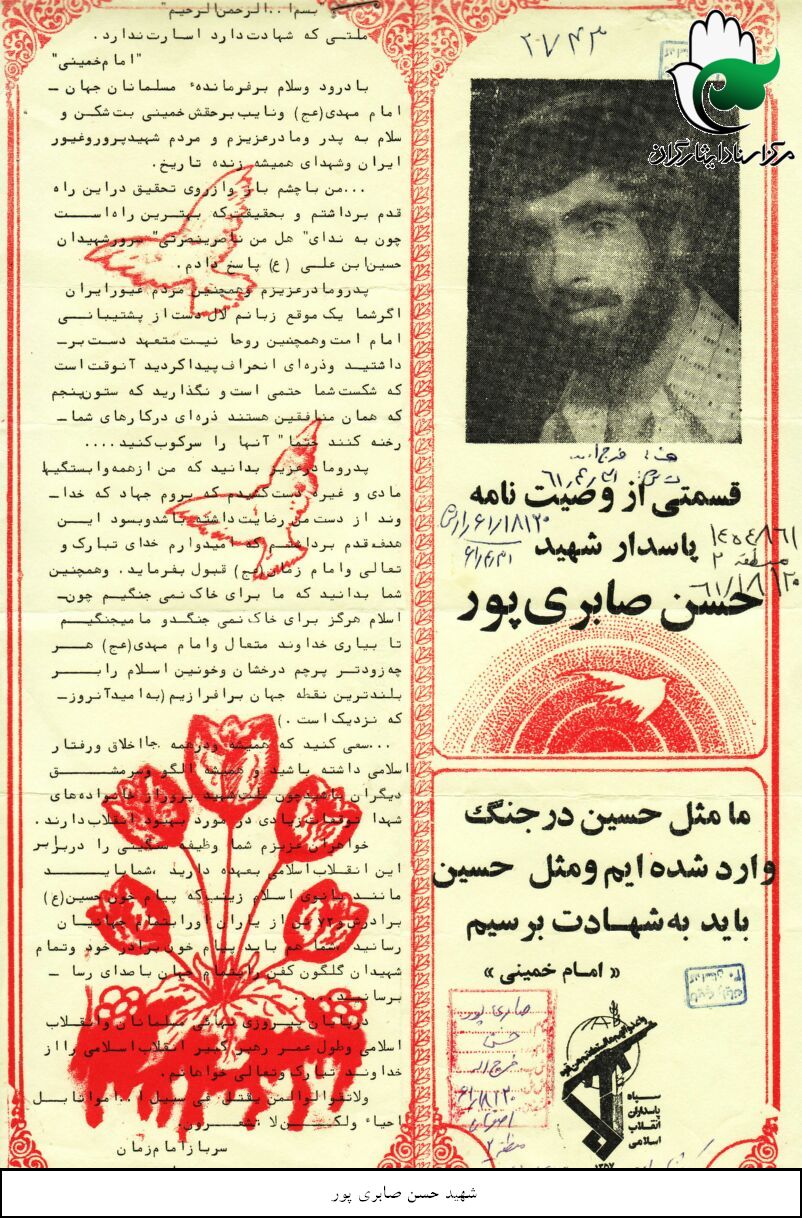 بسم‌ا...الرحمن‌الرحیم"
ملتی که شهادت دارد اسارت ندارد.
"امام‌خمینی"
بادرود وسلام برفرمانده مسلمانان جهان ـ
امام مهدی(عج) ونایب برحقش خمینی بت‌شکن و
سلام به پدر ومادرعزیزم و مردم شهیدپروروغیور
ایران وشهدای همیشه زنده تاریخ.
...من باچشم باز وازروی تحقیق دراین راه
قدم برداشتم و بحقیقت‌که بهترین راه‌است
چون به ندای" هل من ناصرینصرنی" سرورشهیدان
حسین‌ابن‌علی (ع) پاسخ دادم.
پدرومادرعزیزم وهمچنین مردم غیورایران
اگرشما یک موقع زبانم لال دست‌از پشتیبانی
امام امت وهمچنین روحا نیت‌متعهد دست‌برـ
داشتید وذره‌ای انحراف پیداکردید آنوقت‌است
که شکست‌شما حتمی است‌و نگذارید که ستون‌پنجم
که همان منافقین هستند ذره‌ای درکارهای شماـ
رخنه کنند حتما" آنها را سرکوب‌کنید....
پدرومادرعزیز بدانید که من ازهمه‌وابستگیها
مادی و غیره دست‌کشیدم که بروم جهاد که خداـ
وند از دست‌من رضایت‌داشته باشدوبسود این
هدف‌قدم برداشتم که امیدوارم خدای تبارک‌و
تعالی وامام زمان(عج) قبول بفرماید. وهمچنین
شما بدانید که ما برای خاک‌نمی جنگیم چون‌ـ
اسلام هرگز برای خاک‌نمی جنگدو مامیجنگیم
تا بیاری خداوند متعال وامام مهدی(عج) هر
چه‌زودتر پرچم درخشان وخونین اسلام رابر
بلندترین نقطه جهان برافرازیم(به‌امیدآنروزـ
که نزدیک‌است.)
...سعی کنید که همیشه ودرهمه جااخلاق ورفتار
اسلامی داشته باشید و همیشه الگو وسرمشق
دیگران باشیدچون ملت‌شهید پروراز خانواده‌های
شهدا توقعات‌زیادی در مورد بهبود انقلاب‌دارند.
خواهران عزیزم شما وظیفه سنگینی را دربرابر
این انقلاب‌اسلامی بعهده دارید ،شماباید
مانند بانوی اسلام زینب‌که پیام خون‌حسین(ع)
برادرش‌و۷۲ تن‌از یاران اورابتمام جهانیان
رسانید ،شما هم باید پیام خون‌برادر خود وتمام
شهیدان گلگون کفن رابتمام جهان باصدای رسا ـ
برسانید....
درپایان پیروزی نهائی مسلمانان‌وانقلاب
اسلامی وطول عمر رهبر کبیر انقلاب‌اسلامی رااز
خداوند تبارک‌وتعالی خواهانم.
ولاتقولوالمن یقتل فی سبیل ا... امواتابل
احیاء ولکن لا تشعرون.
سربازامام‌زمان
۲۷۴۳
مرکز اسناد ایثارگران
قسمتی از وصیت نامه
پاسدار شهید
حسن صابری پور
ما مثل حسین در جنگ
وارد شده ایم و مثل حسین
باید به شهادت برسیم
« امام خمینی »
صابری پور
حسن
فرج اله
۶۱/۸/۲۰
اصفهان
منطقه ۲
سپاه
پاسداران
انقلاب
اسلامی
۱۳۵۷
شهید حسن صابری پور